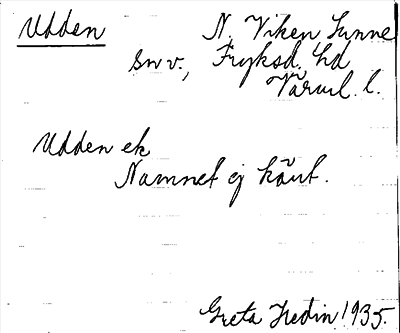 Udden N. Viken Sunne
sn v., Fryksd. hd
Värml. l.
Udden ek
Namnet ej känt.
Greta Hedin 1935.